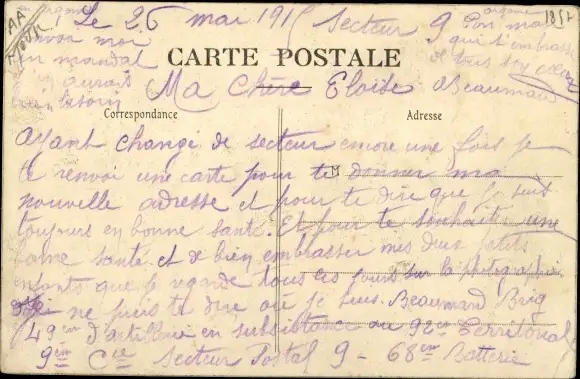 AA
1857
Le 26 mai 191 Secteur 9
envoi moi
un mandat
j'en aurais
bien besoin
Ton mari
qui t'embrasse
de tous son cœur
CARTE POSTALE
Ma Chère Eloïse Beaumard
Correspondance
Adresse
Ayant changé de secteur encore une fois je
te renvoi une carte pour te donner ma
nouvelle adresse et pour te dire que je suis
toujours en bonne santé. Et pour te souhaiter une
bonne santé et de bien embrasser mes deux petits
enfants que je regarde tous ces jours sur la photographie
ne puis te dire où je suis. Beaumard Brig
49em d'artillerie en subsistance au 92em Territorial
9em Cie Secteur Postal 9 - 68em Batterie